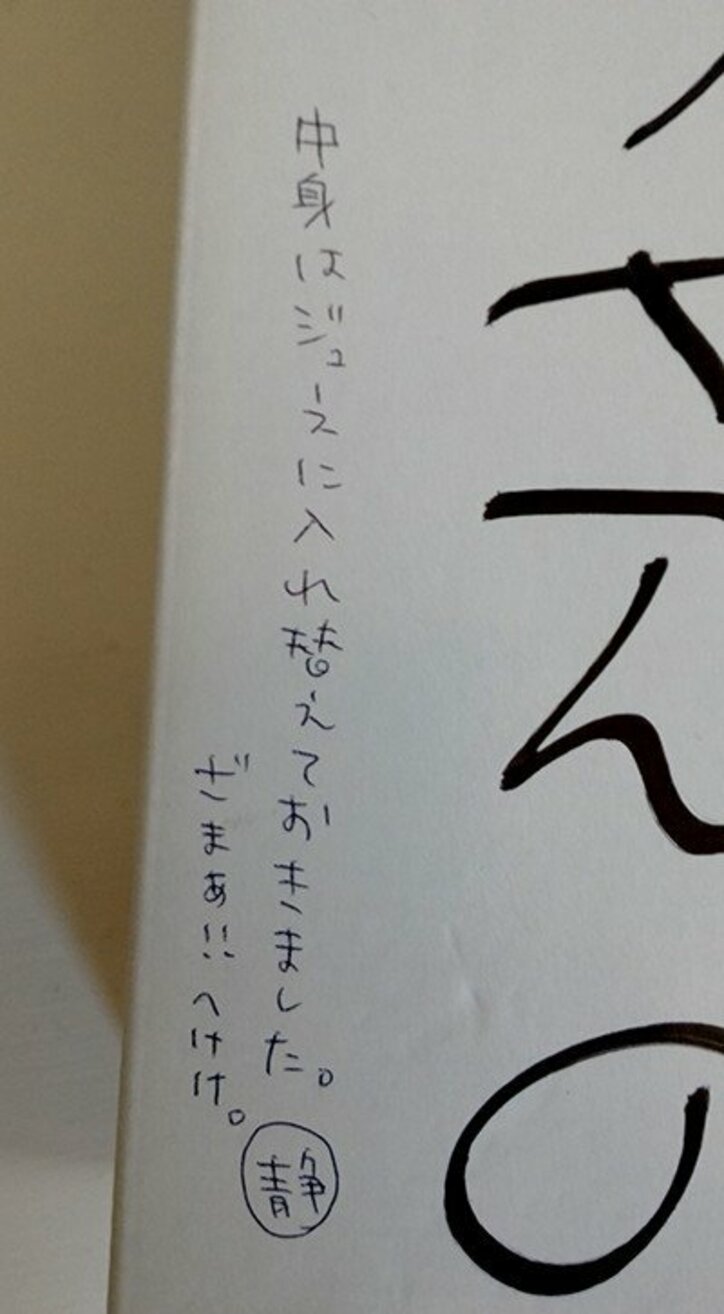 中身はジュースに入れ替えておきました。
ざまぁ!! へけけ。
静